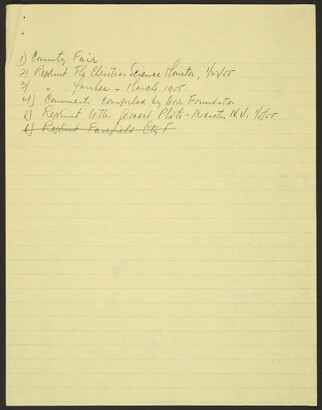 1) Country Fair
2) Reprint The Christian Science Monitor, 1/22/55
3) " Yankee - March 1955
4) Comments compiled by Dorr Foundation
5) Reprint letter Photo - Rochester N.Y.
6) Reprint Fairfield Cty F